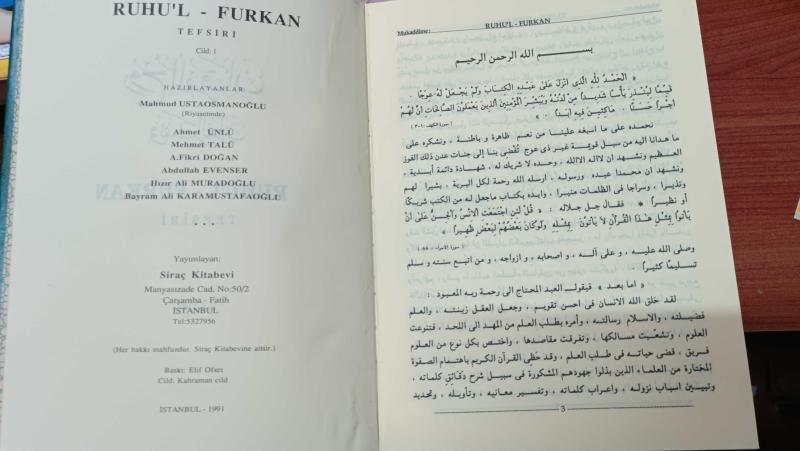 RUHU'L - FURKAN
TEFSİRİ
Cild: 1
HAZIRLAYANLAR:
Mahmud USTAOSMANOĞLU
(Riyasetinde)
Ahmet ÜNLÜ
Mehmet TALÜ
A.Fikri DOĞAN
Abdullah EVENSER
Hızır Ali MURADOĞLU
Bayram Ali KARAMUSTAFAOĞLU
• • •
Yayımlayan:
Siraç Kitabevi
Manyasızade Cad. No:50/2
Çarşamba - Fatih
İSTANBUL
Tel:5327956
(Her hakkı mahfuzdur. Siraç Kitabevine aittir.)
Baskı: Elif Ofset
Cild: Kahraman cild
İSTANBUL - 1991
Mukaddime: RUHU'L - FURKAN
بســـــم الله الرحمن الرحيم
« اَلْحَمْدُ لِلّٰهِ الَّذِى اَنْزَلَ عَلٰى عَبْدِهِ الْكِتَابَ وَلَمْ يَجْعَلْ لَهُ عِوَجًا .
قَيِّمًا لِيُنْذِرَ بَأْسًا شَدِيدًا مِنْ لَدُنْهُ وَيُبَشِّرَ الْمُؤْمِنِينَ الَّذِينَ يَعْمَلُونَ الصَّالِحَاتِ اَنَّ لَهُمْ
اَجْرًا حَسَنًا . مَاكِثِينَ فِيهِ اَبَدًا . » ( سورة الكهف ١-٣ )
نحمده على ما اسبغه علينا من نعم ظاهرة و باطنة ، ونشكره على
ما هدانا اليه من سبل قويمة غير ذى عوج تُفْضى بنا إلى جنات عدن ذلك الفوز
العظيم ونشهد ان لااله الاالله ، وحده لا شريك له ، شهادة دائمة أبدية ،
ونشهد ان محمدا عبده ورسوله ، ارسله الله رحمة لكل البرية ، بشيرا لهم
ونذيرا ، وسراجا فى الظلمات منيرا ، وايده بكتاب ماجعل له من الكتب شريكًا
أو نظيراً * فقال جل جلاله : « قُلْ لَئِنِ اجْتَمَعَتِ الْاِنْسُ وَالْجِنُّ عَلٰى اَنْ
يَأْتُوا بِمِثْلِ هٰذَا الْقُرْآنِ لَا يَأْتُونَ بِمِثْلِهِ وَلَوْكَانَ بَعْضُهُمْ لِبَعْضٍ ظَهِيرًا »
( سورة الاسراء ، ٨٨ )
وصلى الله عليه ، و على آلــه ، و اصحابه ، و ازواجه ، و من اتبع سنته و سلم
تسليمًا كثيرًا .
« اما بعد » فيقول العبد المحتاج الى رحمة ربه المعبود :
لقد خلق الله الانسان فى احسن تقويم ، وجعل العقل زينته ، والعلم
فضيلته ، والاسلام رسالته ، وأمره بطلب العلم من المهد الى اللحد ، فتنوعت
العلوم ، وتشعّبت مسالكها ، وتفرقت مقاصدها ، واختص بكل نوع من العلوم
فريق ، قضى حياته فى طلب العلم ، وقد حظِى القرآن الكريم باهتمام الصفوة
المختارة من العلماء الذين بذلوا جهودهم المشكورة فى سبيل شرح دقائق كلماته ،
وتبيين اسباب نزوله ، واعراب كلماته ، وتفسير معانيه ، وتأويله ، وتحديد
3